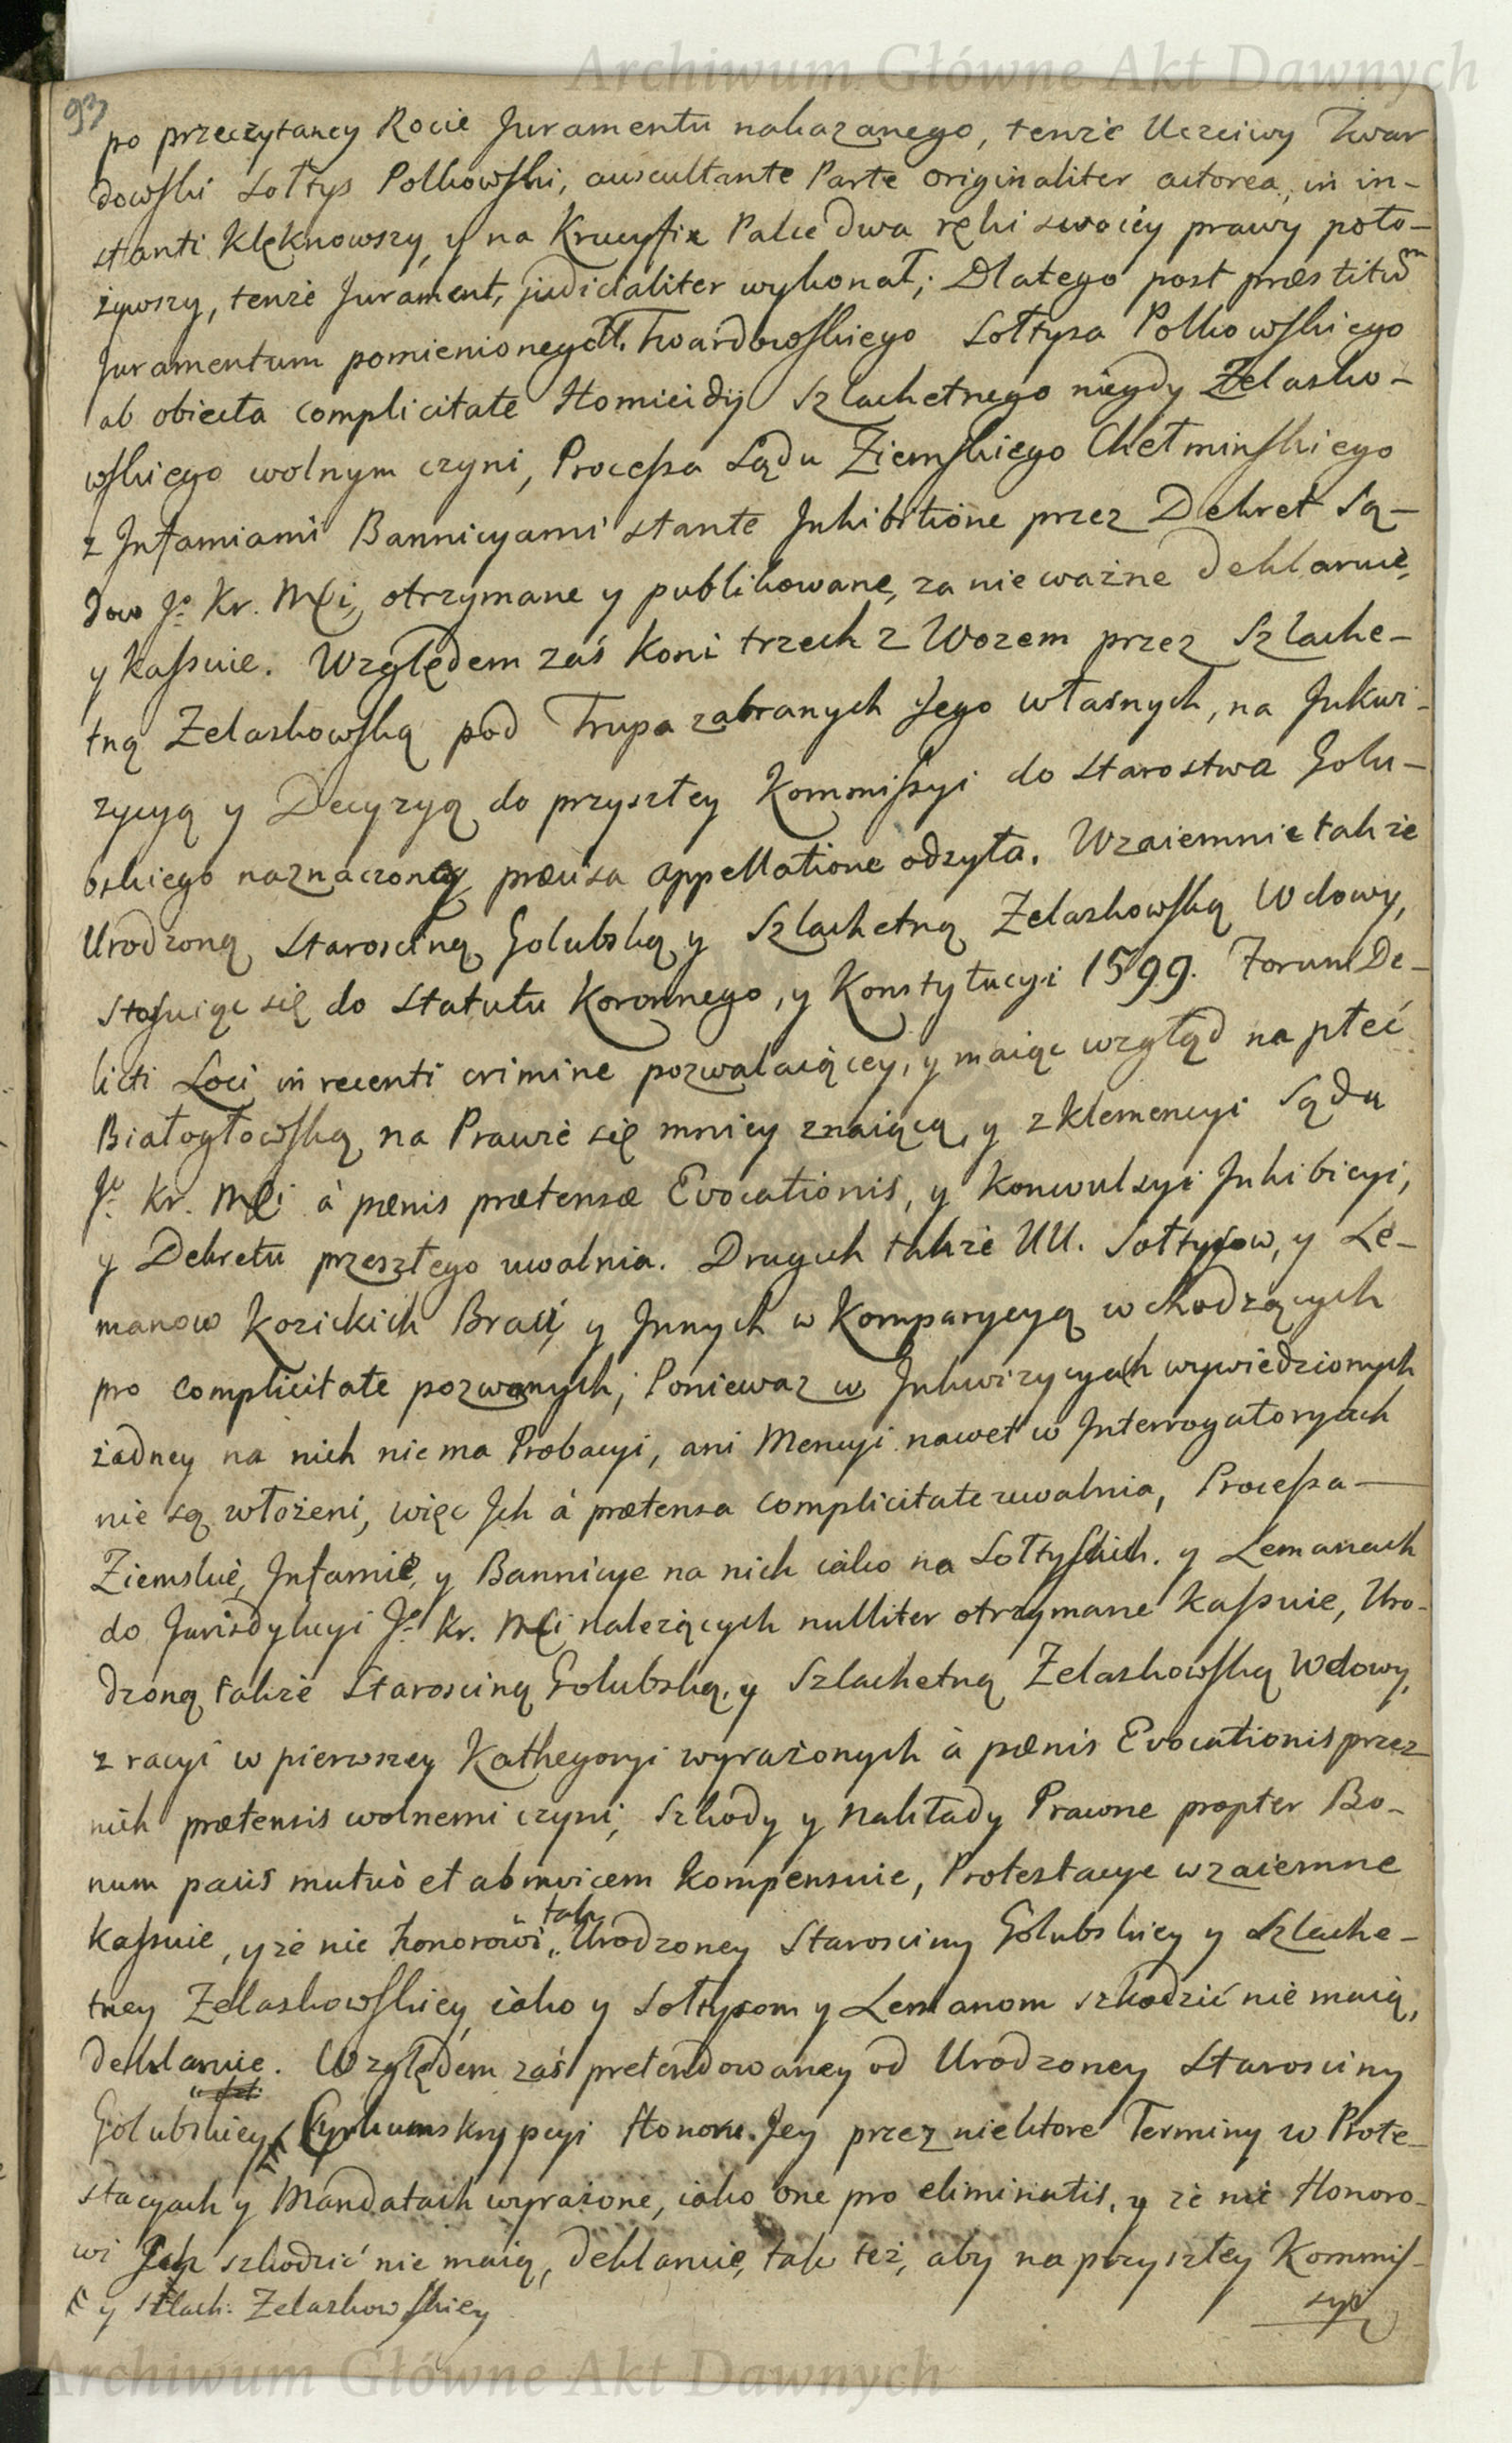 Archiwum Główne Akt Dawnych
93
po przeczytaney Rocie Juramentu nakazanego, tenże Uczciwy Twar
dowski Sołtys Polkowski, auscultante Parte originaliter actorea, in in-
stanti Klęknowszy, y na Krucyfix Palce dwa ręki swoiéy prawy poło-
żywszy, tenże Jurament, judicialiter wykonał; Dlatego post præstitum
Juramentum pomienionego U. Twardowskiego Sołtysa Polkowskiego
ab obiecta complicitate Homicidij Szlachetnego niegdy Zelasko-
wskiego wolnym czyni, Processa Sądu Ziemskiego Chełminskiego
z Infamiami Bannicyami stante Inhibitione przez Dekret Są-
dow Jº Kr. Mci, otrzymane y publikowane, za nie ważne deklaruie,
y kassuie. Względem zaś koni trzech z Wozem przez Szlache-
tną Zelaskowską pod Trupa zabranych Jego własnych, na Inkwi-
zycyą y Decyzyą do przyszłey Kommissyi do Starostwa Golu-
bskiego naznaczoney, præcisa appellatione odsyła. Wzaiemnie także
Urodzoną Starościną Golubską y Szlachetną Zelaskowską Wdowy,
stosuiąc się do Statutu Koronnego, y Konstytucyi 1599. Forum De-
licti Loci in recenti crimine pozwalaiącey, y maiąc wzgłąd na płeć
Białogłowską na Prawie się mniey znaiącą, y z klemencyi Sądu
Jº Kr. Mci à pœnis prætensæ Evocationis, y konwulsyi Inhibicyi,
y Dekretu przeszłego uwalnia. Drugich także UU. Sołtysow, y Le-
manow Kozickich Braci, y Innych w Komparycyą wchodzących
pro complicitate pozwanych, Poniewaz w Inkwizycyach wywiedzionych
żadney na nich nie ma Probacyi, ani Mencyi nawet w Interrogatoryach
nie są włożeni, więc Ich à prætensa complicitate uwalnia, Processa
Ziemskie, Infamie, y Bannicye na nich iako na Sołtysach. y Lemanach
do Jurisdykcyi Jº Kr. Mci należących nulliter otrzymane kassuie, Uro-
dzoną także Starościną Golubską, y Szlachetną Zelaskowską Wdowy,
z racyi w pierwszey Kathegoryi wyrażonych à pœnis Evocationis przez
nich prætensis wolnemi czyni, szkody y nakłady Prawne propter Bo-
num pacis mutuò et ab invicem kompensuie, Protestacye wzaiemne
kassuie, y że nic honorowi tak Urodzoney Starosciny Golubskiey y Szlache-
tney Zelaskowskiey, iako y Sołtysom y Lemanom szkodzić nie maią,
deklaruie. Względem zaś pretendowaney od Urodzoney Starosciny
Golubskiey Cyrkumskrypcyi Honoru Jey przez niektore Terminy w Prote-
stacyach y Mandatach wyrażone, iako one pro eliminatis, y że nic Honoro-
wi Jeh szkodzić nie maią, deklaruie, tak też, aby na przyszłey Kommis-
y Szlach: Zelaskowskiey
syi
Archiwum Główne Akt Dawnych